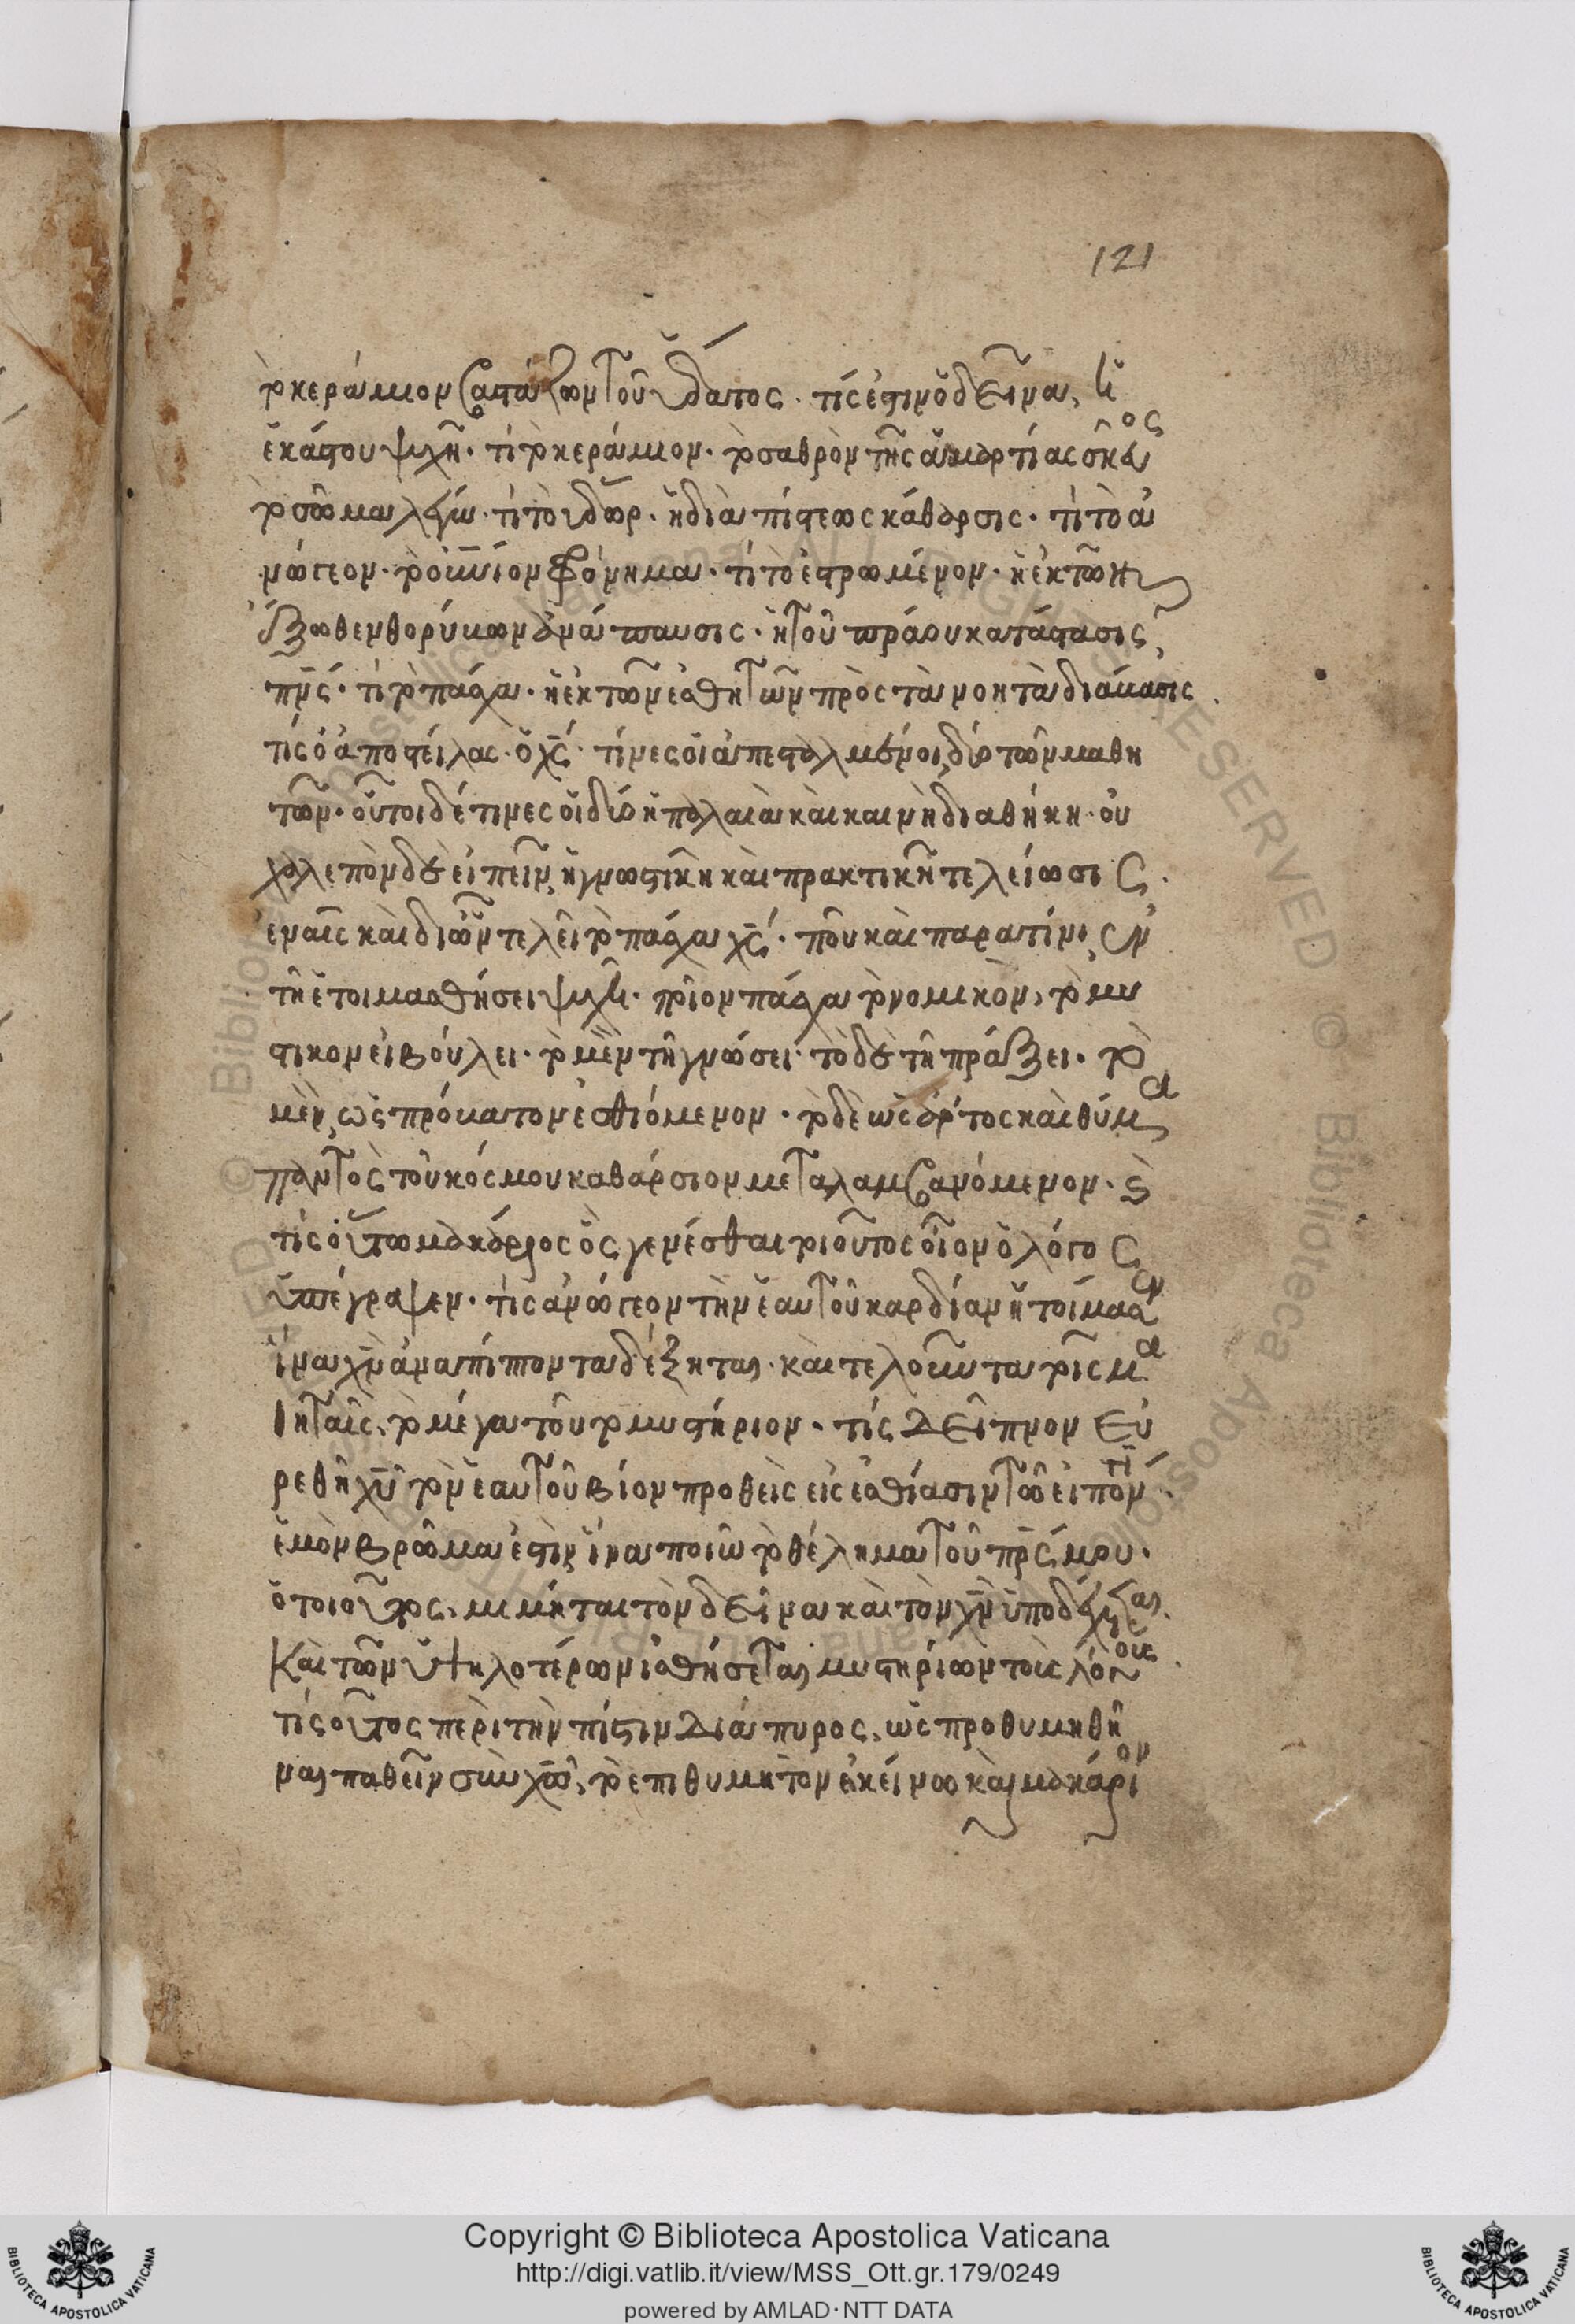 121
τὸ κεράμιον βαστάζων τοῦ ὕδατος· τίς ἐστιν ὁ δεῖνα, ἡ
ἑκάστου ψυχή· τί τὸ κεράμιον· τὸ σαθρὸν τῆς ἁμαρτίας σκεῦος
τὸ σῶμα λέγω· τί τὸ ὕδωρ· ἡ διὰ πίστεως κάθαρσις· τί τὸ ἀ
νώγεον· τὸ οὐράνιον φρόνημα· τί τὸ ἐστρωμένον· ἡ ἐκ τῶν
ἔξωθεν θορύβων ἀνάπαυσις· ἡ τοῦ πράου κατάστασις
πνς· τί τὸ πάσχα· ἡ ἐκ τῶν αἰσθητῶν πρὸς τὰ νοητὰ διάβασις·
τίς ὁ ἀποστείλας· ὁ χς· τίνες οἱ ἀπεσταλμένοι, δύο τῶν μαθη
τῶν· οὗτοι δέ τινες οἱ δύο ἡ παλαιὰ καὶ καινὴ διαθήκη· οὐ
χαλεπὸν δὲ εἰπεῖν, ἡ γνωστικὴ καὶ πρακτικὴ τελείωσις·
ἐν αἷς καὶ δι ὧν τελεῖ τὸ πάσχα χς· ποῦ καὶ παρὰ τίνι, ἐν
τῇ ἑτοιμασθήσει ψυχῇ· ποῖον πάσχα τὸ νομικὸν, τὸ μυ
στικὸν εἰ βούλει· τὸ μὲν τῇ γνώσει· τὸ δὲ τῇ πράξει· τὸ
μὲν, ὡς πρόβατον ἐσθιόμενον· τὸ δὲ ὡς ἄρτος καὶ θύμα
παντὸς τοῦ κόσμου καθάρσιον μεταλαμβανόμενον· καὶ
τίς οὕτω μακάριος ὃς γενέσθαι τοιοῦτος οἷον ὁ λόγος
ὑπέγραψεν· τίς ἀνώγεον τὴν ἑαυτοῦ καρδίαν ἡτοίμασεν
ἵνα χν ἀναπίπτοντα δέξηται· καὶ τελοῦντα τοῖς μα
θηταῖς, τὸ μέγα τοῦτο μυστήριον· τίς δεῖπνον εὑ
ρεθῇ χυ τὸν ἑαυτοῦ βίον προθεὶς εἰς ἑστίασιν τῷ εἰπόντι·
ἐμὸν βρῶμα ἐστὶν, ἵνα ποιῶ τὸ θέλημα τοῦ πρς μου·
ὁ τοιοῦτος, μιμεῖται τὸν δεῖνα καὶ τὸν χν ὑποδέχεται,
καὶ τῶν ὑψηλοτέρων αἰσθήσεται μυστηρίων τοῖς λόγοις·
τίς οὗτος περὶ τὴν πίστιν διάπυρος, ὡς προθυμηθῆ
ναι παθεῖν σὺν χῶ, τὸ ἐπιθυμητὸν ἐκείνω καὶ μακάριον
Copyright © Biblioteca Apostolica Vaticana
http://digi.vatlib.it/view/MSS_Ott.gr.179/0249
powered by AMLAD·NTT DATA